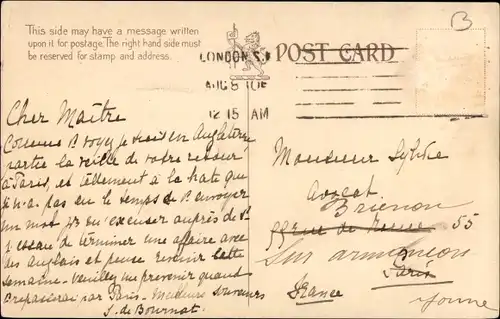 This side may have a message written
upon it for postage. The right hand side must
be reserved for stamp and address.
LONDON S.
AUG 8 10E
12 15 AM
POST CARD
B
Cher Maître
Comme je suis en Angleterre
partie la veille de votre retour
à Paris, et tellement à la hâte que
je n'ai pas eu le temps de envoyer
un mot m'excuser auprès de
de terminer une affaire avec
des anglais et pense revenir cette
semaine - Veuillez me prévenir quand
repasserai par Paris - Meilleurs souvenirs
S. de Bournat.
Monsieur Sylvie
Avocat
Brienon
55 rue de 55
sur armançon
Paris
France
Yonne